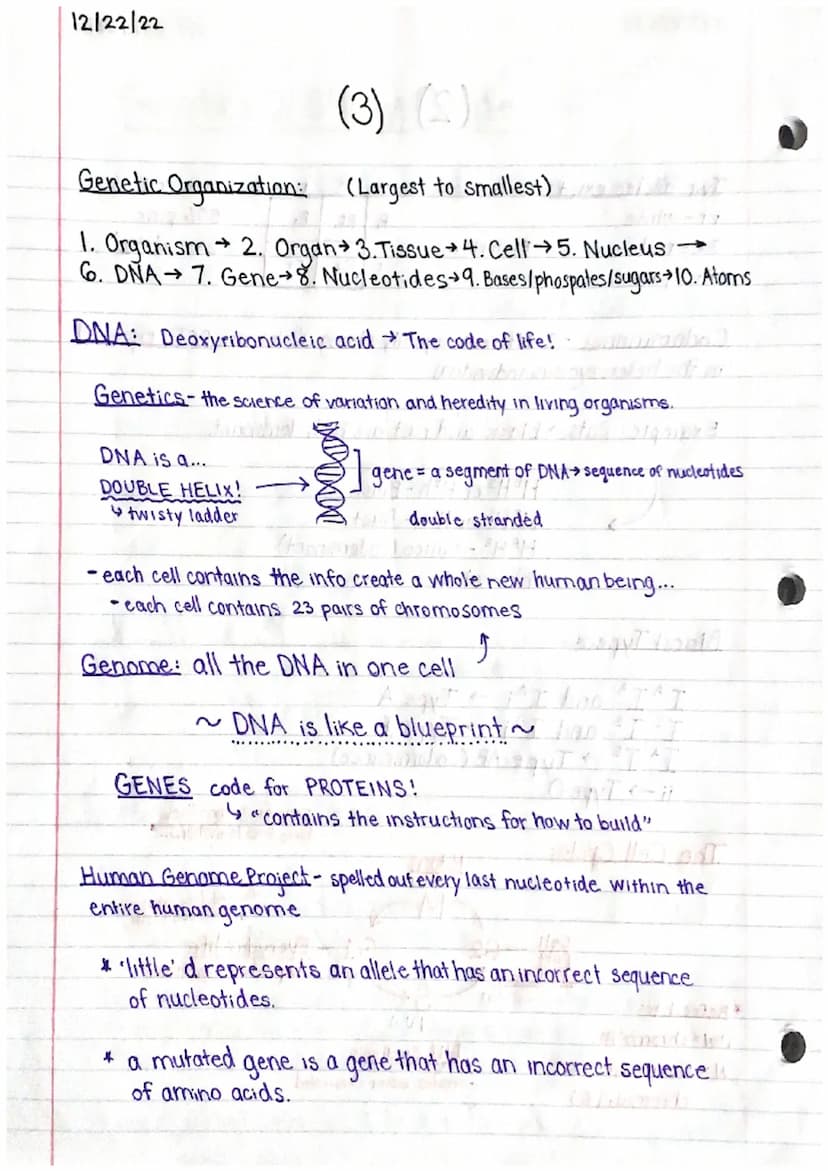 12/22/22
(3)
Genetic Organization: (Largest to smallest)
1. Organism → 2. Organ → 3. Tissue → 4. Cell → 5. Nucleus →
6. DNA → 7. Gene → 8. Nucleotides → 9. Bases/phospales/sugars → 10. Atoms
DNA: Deoxyribonucleic acid → The code of life!
Genetics - the science of variation and heredity in living organisms.
DNA is a...
DOUBLE HELIX! →
↳ twisty ladder
gene = a segment of DNA → sequence of nucleotides
double stranded
- each cell contains the info create a whole new human being...
- each cell contains 23 pairs of chromosomes
Genome: all the DNA in one cell
~ DNA is like a blueprint ~
GENES code for PROTEINS!
↳ "contains the instructions for how to build"
Human Genome Project - spelled out every last nucleotide within the
entire human genome
* 'little' d represents an allele that has an incorrect sequence
of nucleotides.
* a mutated gene is a gene that has an incorrect sequence
of amino acids.